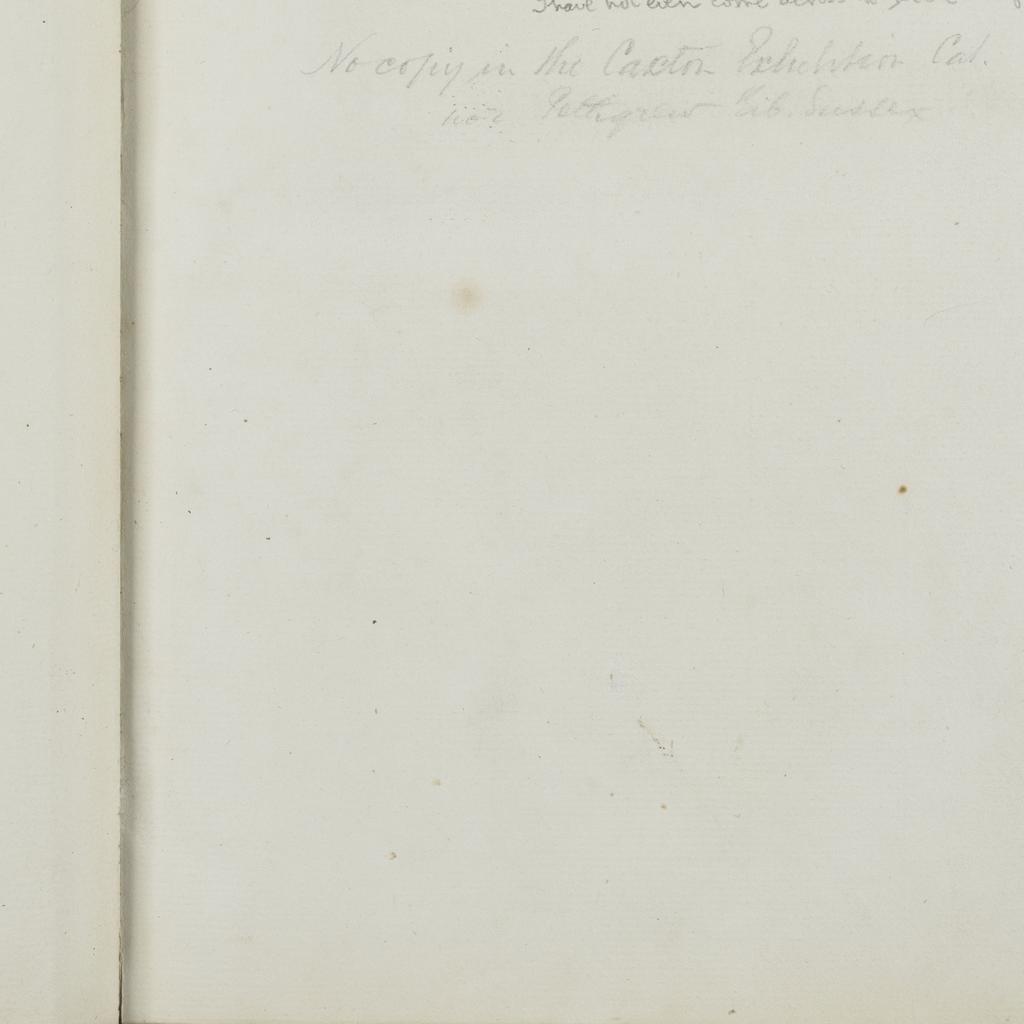 I have not even come across
No copy in the Caxton Exhibition Cat.
nor Pettigrew Bib. Sussex